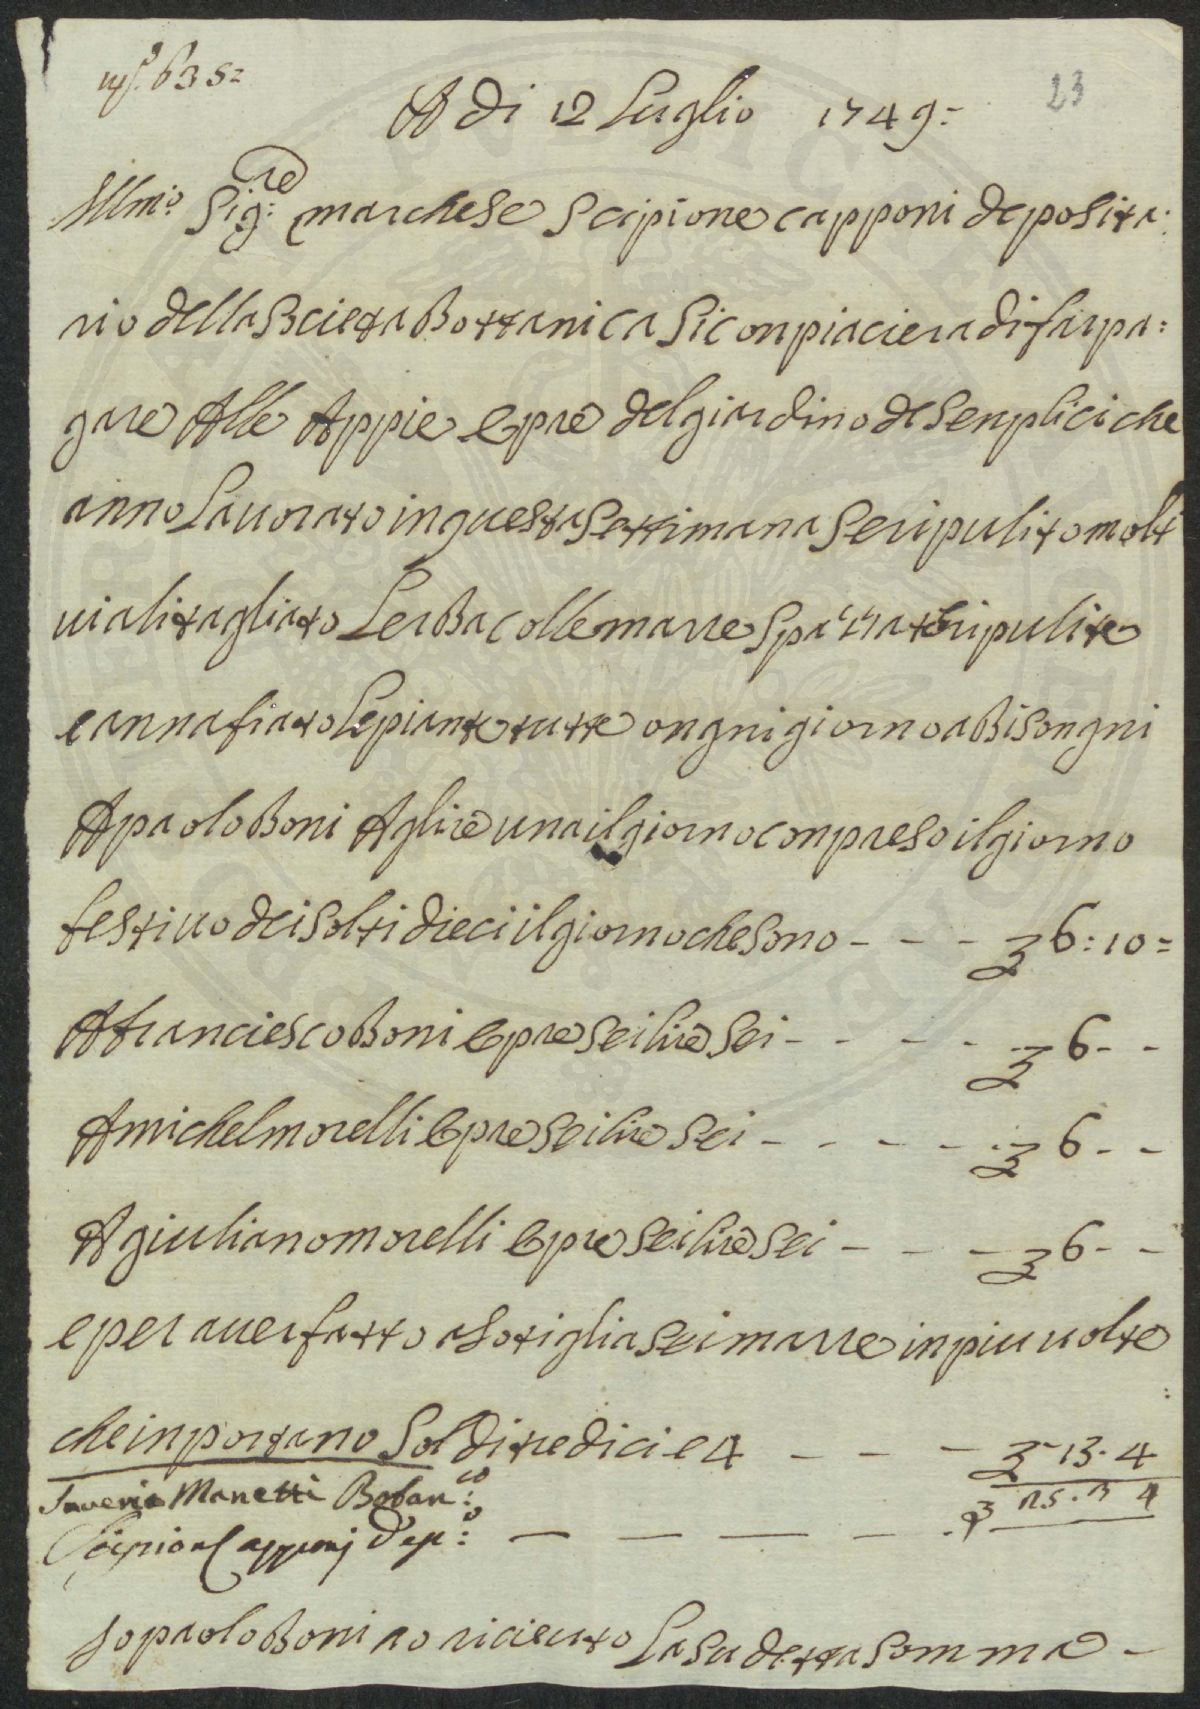 n.º 635=
23
A di 12 Luglio 1749=
Illmo: Sig:re marchese Scipione capponi deposita:
rio della Societa Bottanica Si conpiaciera di far pa:
gare Alle Appie e pre del giardino de Senplici che
anno Lauorato in questa Settimana Se ripulito molt
uiali tagliato LerBa colle marre Spazzato e ripulite
e annafiato le piante tutte ongni giorno a Bisongni
A paolo Boni A lire una il giorno conpreso il giorno
festiuo de i Solti dieci il giorno che sono - - - 6:10=
A franciesco Boni e pre Sei lire Sei - - - - 6 - -
A michel morelli e pre Sei lire Sei - - - - 6 - -
A giuliano morelli e pre Sei lire Sei - - - 6 - -
e per auer fatto asotiglia Sei marre in piu uolte
che inportano Soldi tredici e 4 - - - -13.4
Saverio Manetti Botan:co
25.3 4
Scipion Capponj Dep:o
Io paolo Boni ao riceuto La Su detta Somma -